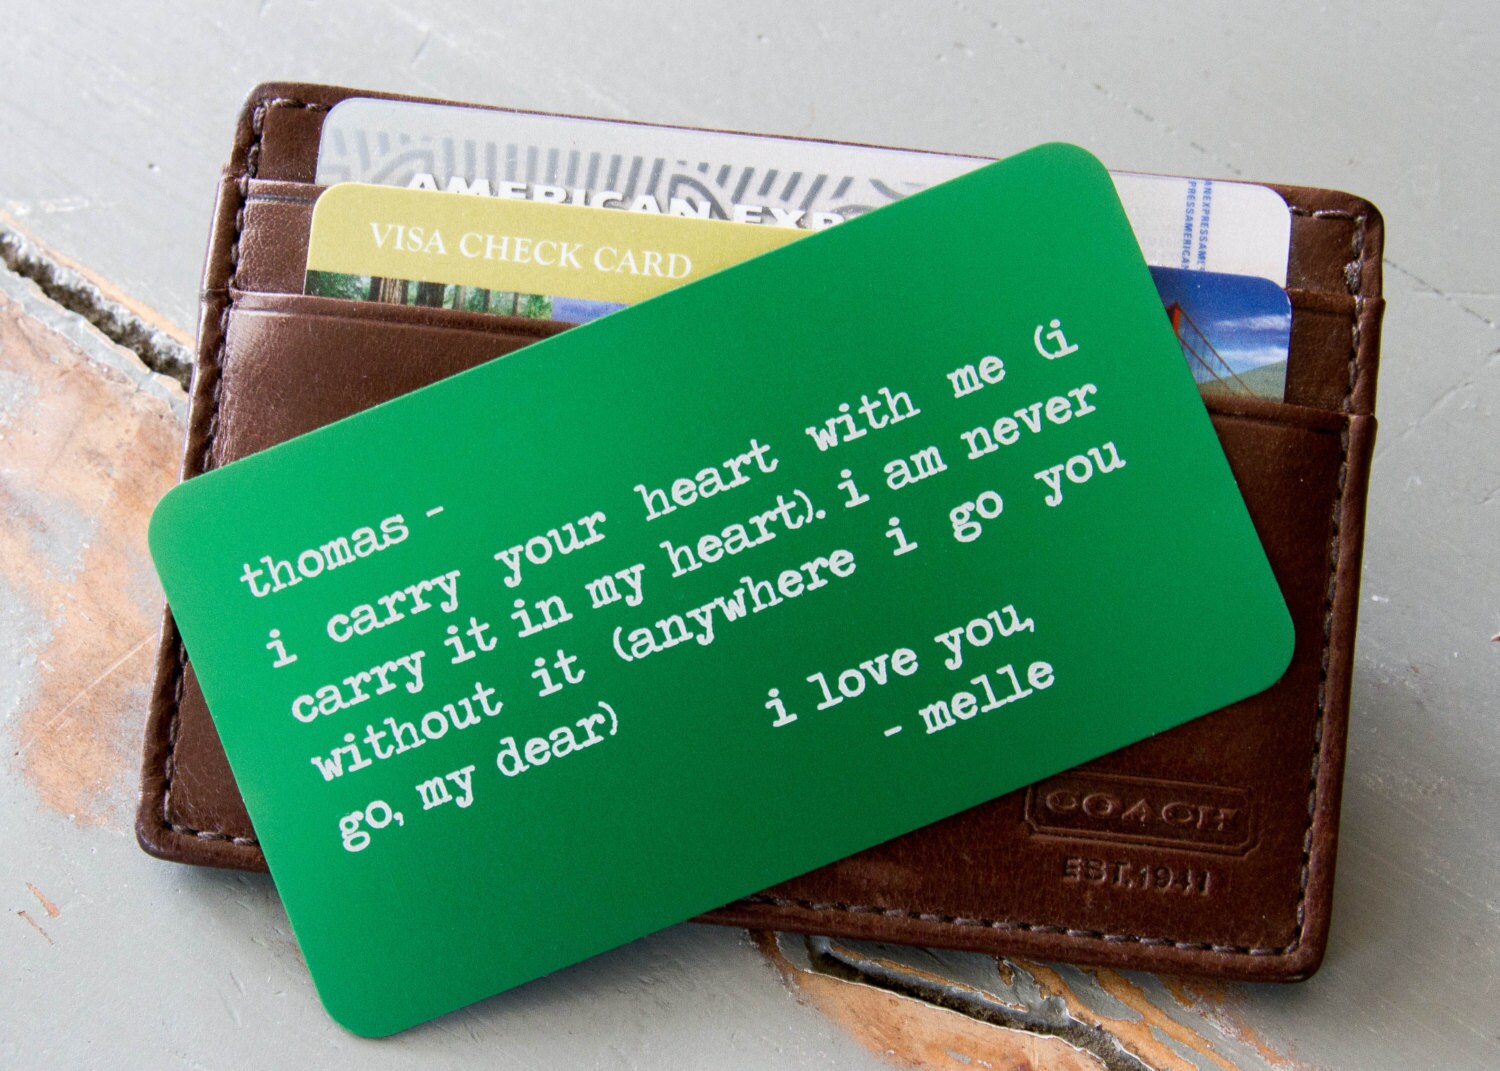 AMERICAN EXP
VISA CHECK CARD
thomas -
i carry your heart with me (i
carry it in my heart). i am never
without it (anywhere i go you
go, my dear)
i love you,
- melle
COACH
EST. 1941